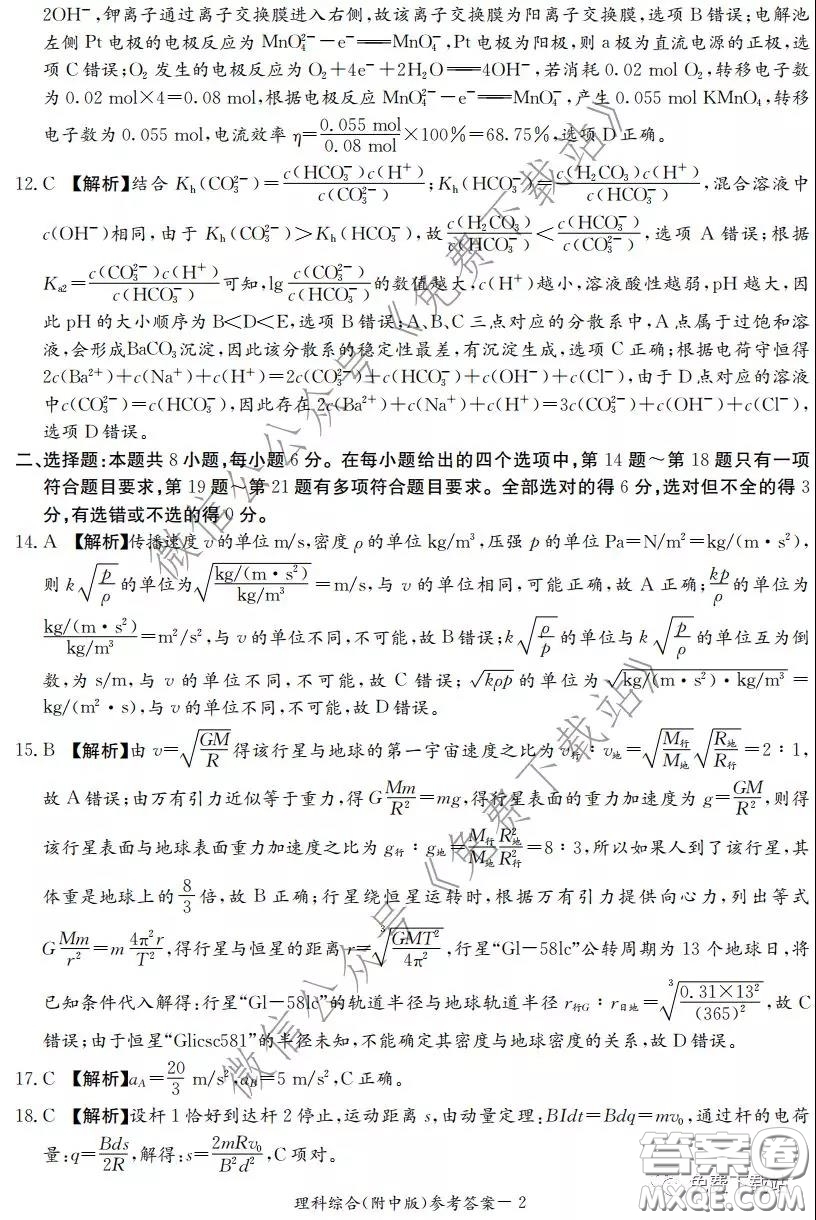 2OH⁻,钾离子通过离子交换膜进入右侧,故该离子交换膜为阳离子交换膜,选项 B 错误;电解池
左侧 Pt 电极的电极反应为 MnO₄²⁻−e⁻══MnO₄⁻,Pt 电极为阳极,则 a 极为直流电源的正极,选
项 C 错误;O₂ 发生的电极反应为 O₂+4e⁻+2H₂O══4OH⁻,若消耗 0.02 mol O₂,转移电子数
为 0.02 mol×4=0.08 mol,根据电极反应 MnO₄²⁻−e⁻══MnO₄⁻,产生 0.055 mol KMnO₄,转移
电子数为 0.055 mol,电流效率 η=0.055 mol/0.08 mol×100%=68.75%,选项 D 正确。
12. C 【解析】结合 Kh(CO₃²⁻)=c(HCO₃⁻)c(H⁺)/c(CO₃²⁻);Kh(HCO₃⁻)=c(H₂CO₃)c(H⁺)/c(HCO₃⁻),混合溶液中
c(OH⁻)相同,由于 Kh(CO₃²⁻)>Kh(HCO₃⁻),故c(H₂CO₃)/c(HCO₃⁻)<c(HCO₃⁻)/c(CO₃²⁻),选项 A 错误;根据
Ka2=c(CO₃²⁻)c(H⁺)/c(HCO₃⁻)可知,lg c(CO₃²⁻)/c(HCO₃⁻)的数值越大,c(H⁺)越小,溶液酸性越弱,pH 越大,因
此 pH 的大小顺序为 B<D<E,选项 B 错误;A、B、C 三点对应的分散系中,A 点属于过饱和溶
液,会形成BaCO₃沉淀,因此该分散系的稳定性最差,有沉淀生成,选项 C 正确;根据电荷守恒得
2c(Ba²⁺)+c(Na⁺)+c(H⁺)=2c(CO₃²⁻)+c(HCO₃⁻)+c(OH⁻)+c(Cl⁻),由于 D 点对应的溶液
中c(CO₃²⁻)=c(HCO₃⁻),因此存在 2c(Ba²⁺)+c(Na⁺)+c(H⁺)=3c(CO₃²⁻)+c(OH⁻)+c(Cl⁻),
选项 D 错误。
二、选择题:本题共 8 小题,每小题 6 分。在每小题给出的四个选项中,第 14 题~第 18 题只有一项
符合题目要求,第 19 题~第 21 题有多项符合题目要求。全部选对的得 6 分,选对但不全的得 3
分,有选错或不选的得 0 分。
14. A 【解析】传播速度 v的单位 m/s,密度 ρ的单位 kg/m³,压强 p 的单位 Pa=N/m²=kg/(m·s²),
则 k√(p/ρ)的单位为√((kg/(m·s²))/(kg/m³))=m/s,与 v 的单位相同,可能正确,故 A 正确;kp/ρ的单位为
(kg/(m·s²))/(kg/m³)=m²/s²,与 v 的单位不同,不可能,故 B错误;k√(ρ/p)的单位与 k√(p/ρ)的单位互为倒
数,为 s/m,与 v 的单位不同,不可能,故 C 错误;√(kρp)的单位为√(kg/(m·s²)·kg/m³)=
kg/(m²·s),与 v的单位不同,不可能,故 D 错误。
15. B 【解析】由 v=√(GM/R)得该行星与地球的第一宇宙速度之比为 v行∶v地=√(M行/M地)√(R地/R行)=2∶1,
故 A错误;由万有引力近似等于重力,得 G Mm/R²=mg,得行星表面的重力加速度为 g=GM/R²,则得
该行星表面与地球表面重力加速度之比为 g行∶g地=M行R地²/M地R行²=8∶3,所以如果人到了该行星,其
体重是地球上的8/3倍,故 B 正确;行星绕恒星运转时,根据万有引力提供向心力,列出等式
G Mm/r²=m 4π²r/T²,得行星与恒星的距离 r=³√(GMT²/4π²),行星“Gl−58lc”公转周期为 13 个地球日,将
已知条件代入解得:行星“Gl−58lc”的轨道半径与地球轨道半径 r行G∶r日地=³√(0.31×13²/(365)²),故 C
错误;由于恒星“Glicsc581”的半径未知,不能确定其密度与地球密度的关系,故 D 错误。
17. C 【解析】aA=20/3 m/s²,aB=5 m/s²,C 正确。
18. C 【解析】设杆 1 恰好到达杆 2 停止,运动距离 s,由动量定理:BIdt=Bdq=mv₀,通过杆的电荷
量:q=Bds/2R,解得:s=2mRv₀/B²d²,C 项对。
理科综合(附中版)参考答案−2
微信公众号《免费下载站》
微信公众号《免费下载站》
免费下载站
答案圈
MXQE.COM